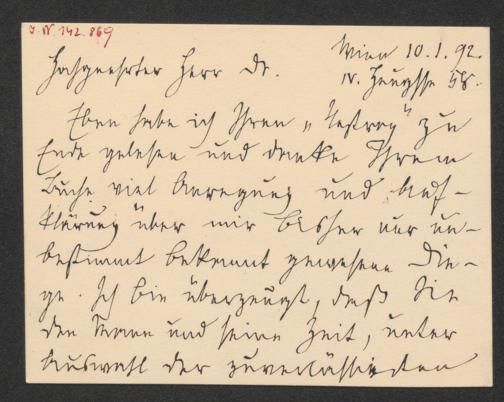 I. N. 142.869
Wien 10.1.92.
Hochgeehrter Herr Dr.
IV. Heugasse 58.
Eben habe ich Ihren „Nestroy“ zu
Ende gelesen und danke Ihrem
Buche viel Anregung und Auf-
klärung über mir bisher nur un-
bestimmt bekannt gewesene Din-
ge. Ich bin überzeugt, daß Sie
den Mann und seine Zeit, unter
Auswahl der zuverlässigsten